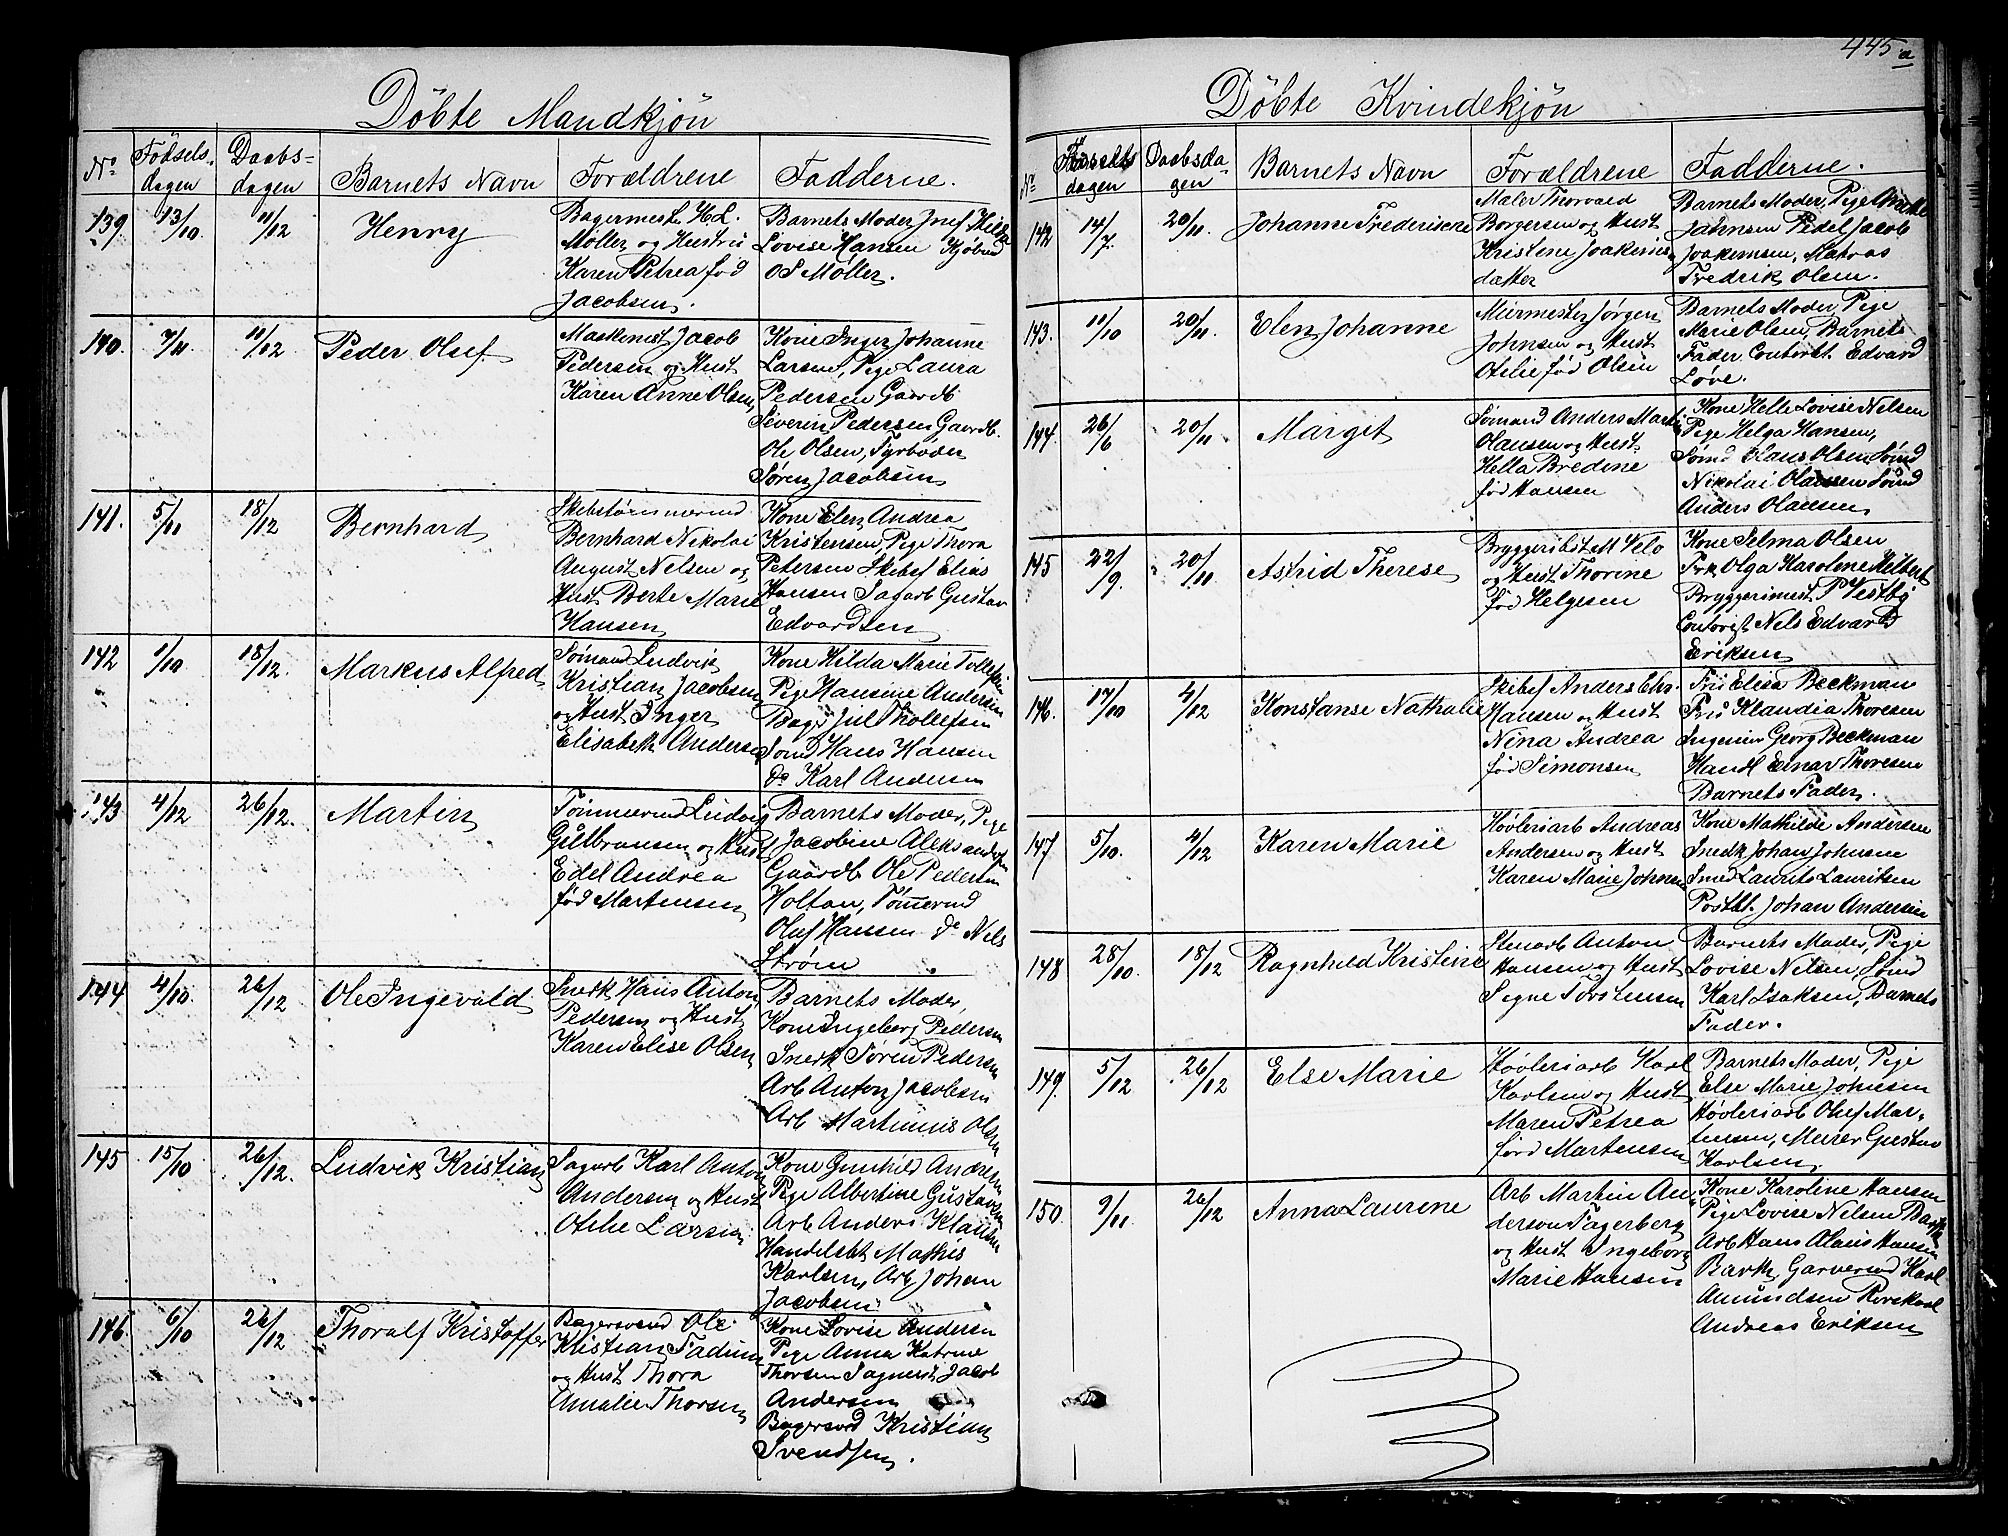 Döbte Mandkjön
No
Födsels-
dagen
Daabs-
dagen
Barnets Navn
Forældrene
Fadderne.
139.
13/10
11/12
Henry
Bagermester H. L.
Möller og Hustru
Karen Petrea fød
Jacobsen.
Barnets Moder, Jnsf Hilda
Lovise Hansen Kjøbmd
O S Møller.
140.
7/11
11/12
Peder Oluf
Maskenist Jacob
Pedersen og Hust
Karen Anne Olsen,
Kone Inger Johanne
Larsen, Pige Laura
Pedersen Gaardb
Severin Pedersen Gaardb.
Ole Olsen, Fyrbøder
Søren Jacobsen
141.
5/11
18/12
Bernhard
Skibstømmermd
Bernhard Nikolai
August Nelsen og
Hust Berte Marie
Hansen
Kone Elen Andrea
Kristensen, Pige Thora
Petersen Skibsf Elias
Hansen Sagarb Gustav
Edvardsen
142
11/10
18/12.
Markus Alfred
Sømand Ludvik
Kristian Jacobsen
og Hust Inger
Elisabeth Andersen
Kone Hilda Marie Tollefsen
Pige Hansine Andersen
Bager Jul Thollefsen
Sømd Hans Hansen
Do Karl Andersen
143
4/12
26/12.
Martin
Tömmermd Ludvig
Gulbransen og Hust
Edel Andrea
fød Martensen
Barnets Moder, Pige
Jacobine Aleksandersen
Gaardb Ole Pedersen
Holtan, Tömermd
Oluf Hansen Do Nels
Strøm
144
4/10.
26/12
Ole Ingevald
Snedk Hans Anton
Pedersen og Hust
Karen Elise Olsen
Barnets Moder,
Kone Ingeborg Pedersen
Snedk Søren Pedersen
Arb Anton Jacobsen
Arb Martinius Olsen
145
15/10
26/12.
Ludvik Kristian
Sagarb Karl Anton
Andersen og Hust
Otilie Larsen
Kone Gunhild Andersen
Pige Albertine Gustavsen
Arb Anders Klausen
Handelsbt Mathis
Karlsen, Arb Johan
Jacobsen
146.
6/10
26/12
Thoralf Kristoffer
Bagersvend Ole
Kristian Fadum
og Hust Thora
Amalie Thorsen
Kone Lovise Andersen
Pige Anna Katrine
Thorsen Sagmest Jacob
Andersen
Bagersvd Kristian
Svendsen.
445 a
Döbte Kvindekjön
No
Fødsels
dagen
Daabsda-
gen
Barnets Navn
Forældrene
Fadderne.
142
14/7
20/11.
Johanne Frederikke
Maler Thorvald
Borgersen og Hust
Kristine Joakims-
datter
Barnets Moder, Pige
Johnsen Pedel Jacob
Joakimsen, Matros
Fredrik Olsen.
143.
11/10
20/11.
Elen Johanne
Murmester Jørgen
Johnsen og Hust
Otilie fød Olsen
Barnets Moder, Pige
Marie Olsen, Barnets
Fader Contorbt Edvard
Løve.
144.
26/6
20/11
Marget
Sømand Anders Martin
Olausen og Hust
Hella Bredine
fød Hansen
Kone Helle Lovise Nelsen
Pige Helga Hansen,
Sømd Klaus Olsen Sømd
Nikolai Olausen Sømd
Anders Olausen
145
22/9.
20/11
Astrid Therese
Bryggeribst M Velo
og Hust Thorine
fød Helgesen
Kone Selma Olsen
Frk Olga Karoline Hilbert
Bryggerimest. P Vestby
Contorist Nels Edvard
Eriksen
146.
17/10
4/12
Konstanse Nathalie
Skibsf Anders Chr.
Hansen og Hust
Nina Andrea
fød Simonsen
Fru Elisa Beckman
Fru Klaudia Thoresen
Ingeniør Georg Beckman
Handl Einar Thoresen
Barnets Fader.
147
5/10.
4/12
Karen Marie
Høvleriarb Andreas
Andersen og Hust
Karen Marie Johnsen
Kone Mathilde Andersen
Snedk Johan Johnsen
Smed Laurits Lauritsen
Postbt. Johan Andersen
148
28/10.
18/12
Ragnhild Kristine
Stenarb Anton
Hansen og Hust
Signe Torstensen
Barnets Moder, Pige
Lovise Nelsen, Sømd
Karl Isaksen, Barnets
Fader.
149.
5/12
26/12
Else Marie
Høvleriarb Karl
Karlsen og Hust
Maren Petrea
fød Martensen
Barnets Moder, Pige
Else Marie Johnsen
Høvleriarb Oluf Mar-
tensen, Murer Gustav
Karlsen,
150.
9/11
26/12
Anna Laurine
Arb Martin An-
dersen Fagerberg
og Hust Ingeborg
Marie Hansen
Kone Karoline Hansen
Pige Lovise Nelsen Barth
Arb Hans Olaus Hansen
Barth, Garvermd Karl
Amundsen Rørekarl
Andreas Eriksen